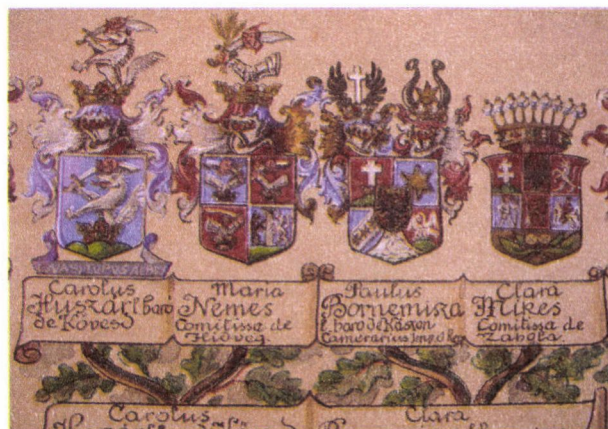 Carolus
Huszár l. baró
de Kövesd
Maria
Nemes
Comitissa de
Hidvég.
Paulus
Bornemisza
l. baró de Kászon
Camerarius Imp. et Reg.
Clara
Mikes
Comitissa de
Zabola.
Carolus
Clara